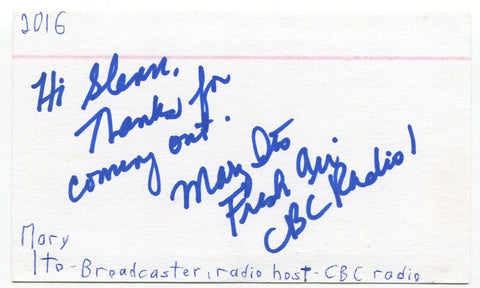 2016
Hi Glenn,
Thanks for
coming out.
Mary Ito
Fresh Air.
CBC Radio!
Mary
Ito-Broadcaster, radio host-CBC radio